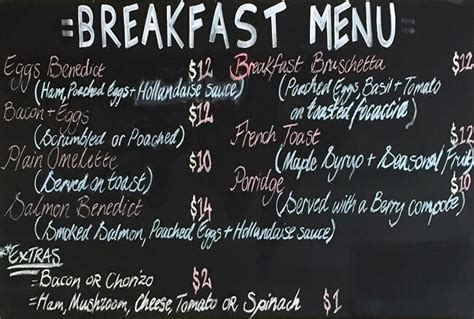 =BREAKFAST MENU=
Eggs Benedict $12
(Ham, Poached Eggs + Hollandaise sauce)
Bacon + Eggs $12
(Scrambled or Poached)
Plain Omelette $10
(Served on toast)
Salmon Benedict $14
(Smoked Salmon, Poached Eggs + Hollandaise sauce)
Breakfast Bruschetta $12
(Poached Eggs, Basil + Tomato
on toasted focaccia)
French Toast $12
(Maple Syrup + Seasonal Fruit)
Porridge $10
(Served with a Berry compote)
*EXTRAS
=Bacon or Chorizo $2
=Ham, Mushroom, Cheese, Tomato or Spinach $1